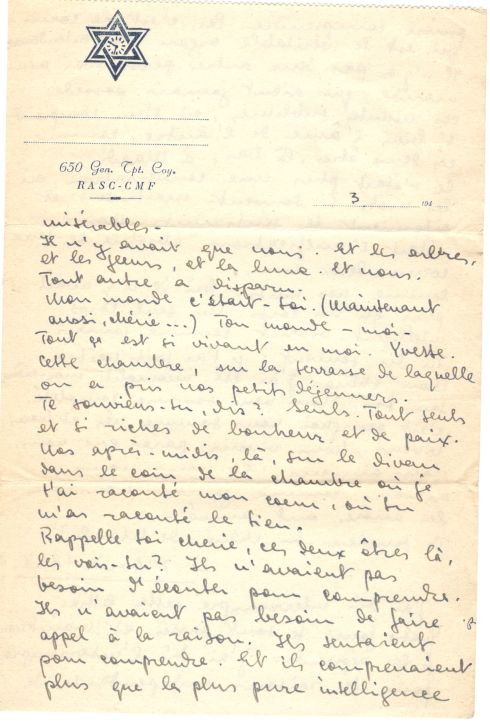 650 Gen. Tpt. Coy.
RASC-CMF
3 194
misérables.-
Il n'y avait que nous. Et les arbres,
et les fleurs, et la lune. Et nous.
Tout autre a disparu.
Mon monde c'était - toi. (Maintenant
aussi, chérie...) Ton monde - moi -
Tout ça est si vivant en moi. Yvette.
Cette chambre, sur la terrasse de laquelle
on a pris nos petits déjeuners.
Te souviens-tu, dis? Seuls. Tout seuls
et si riches de bonheur et de paix.
Nos après-midis, là, sur le divan
dans le coin de la chambre où je
t'ai raconté mon coeur, où tu
m'as raconté le tien.
Rappelle toi chérie, ces deux êtres là,
les vois-tu? Ils n'avaient pas
besoin d'écouter pour comprendre.
Ils n'avaient pas besoin de faire
appel à la raison. Ils sentaient
pour comprendre. Et ils comprenaient
plus que la plus pure intelligence